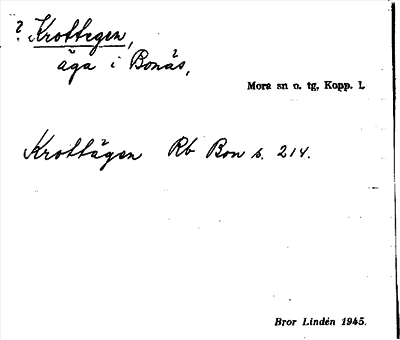 ? Krottegen,
äga i Bonäs,
Mora sn o. tg, Kopp. l.
Krottägen Rb Bon s. 214.
Bror Lindén 1945.